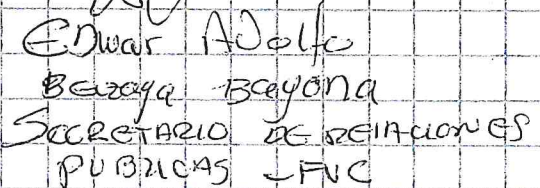 EDwar ADolfo
Bezaya Bayona
SECRETARIO DE RElACIONES
PUBLICAS - FVC